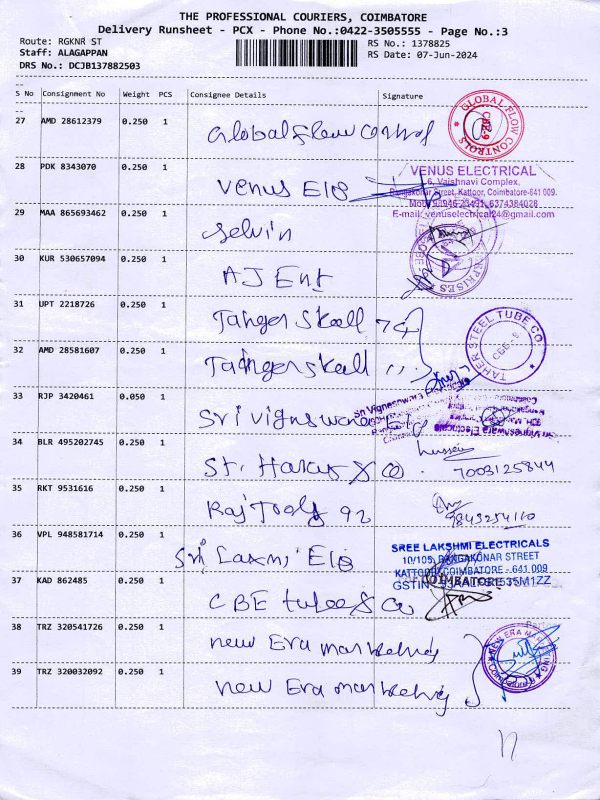 THE PROFESSIONAL COURIERS, COIMBATORE
Delivery Runsheet - PCX - Phone No.:0422-3505555 - Page No.:3
Route: RGKNR ST RS No.: 1378825
Staff: ALAGAPPAN RS Date: 07-Jun-2024
DRS No.: DCJB137882503
S No Consignment No Weight PCS Consignee Details Signature
27 AMD 28612379 0.250 1 Globalflow control
GLOBAL FLOW CONTROLS
CBE-9
28 PDK 8343070 0.250 1 Venus Els
VENUS ELECTRICAL
6, Vaishnavi Complex,
Rangakonar Street, Kattoor, Coimbatore-641 009.
6374384028
E-mail: venuselectrical24@gmail.com
29 MAA 865693462 0.250 1 Selvin
30 KUR 530657094 0.250 1 AJ Ent
31 UPT 2218726 0.250 1 74
TAHER STEEL TUBE CO.
CBE-9
32 AMD 28581607 0.250 1
33 RJP 3420461 0.050 1 Sri
Sri Vigneswara Electricals
34 BLR 495202745 0.250 1 St. & Co.
7003125844
35 RKT 9531616 0.250 1 Raj Tools 92
36 VPL 948581714 0.250 1 Sri Laxmi Els
SREE LAKSHMI ELECTRICALS
10/105, RANGAKONAR STREET
KATTOOR, COIMBATORE - 641 009
GSTIN
37 KAD 862485 0.250 1 CBE tubes & Co
COIMBATORE
38 TRZ 320541726 0.250 1 new Era marketing
NEW ERA MARKETING
Coimbatore-9
39 TRZ 320032092 0.250 1 new Era marketing